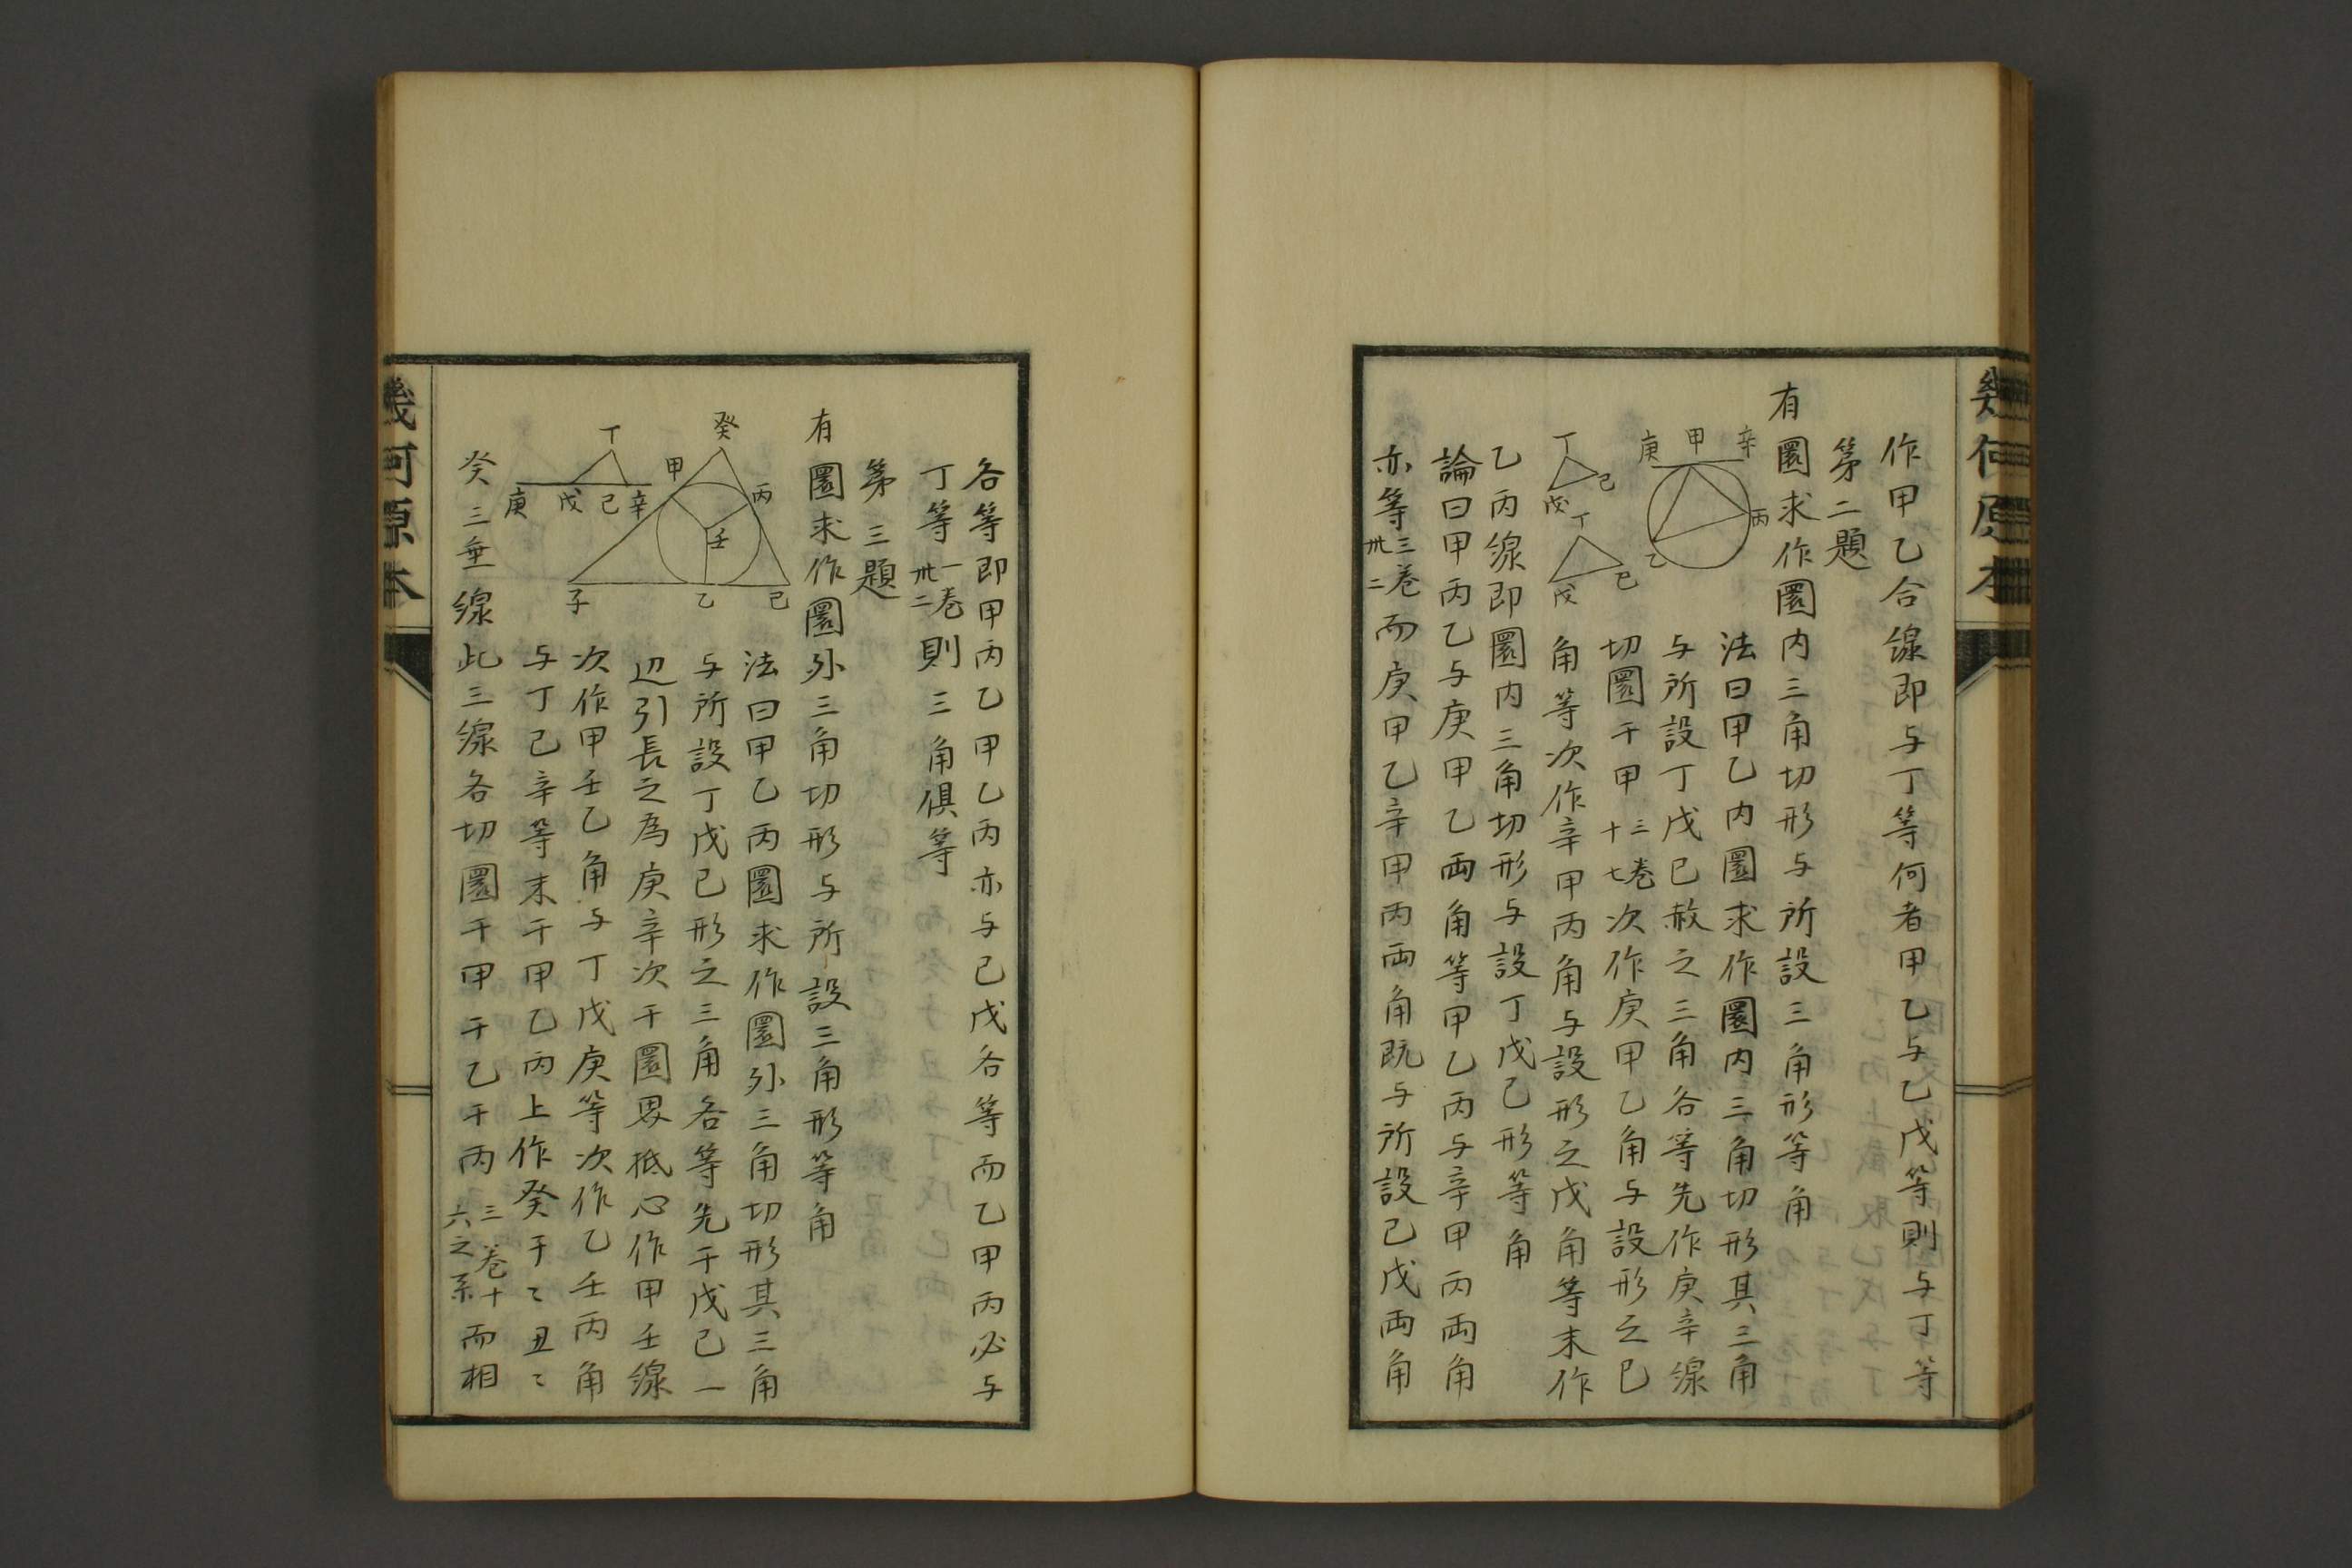 幾何原本
作甲乙合線即与丁等何者甲乙与乙戊等則与丁等
第二題
有圜求作圜内三角切形与所設三角形等角
辛
甲
庚
丙
乙
丁
己
戊
丁
己
戊
法曰甲乙内圜求作圜内三角切形其三角
与所設丁戊己赦之三角各等先作庚辛線
切圜于甲三卷十七次作庚甲乙角与設形之己
角等次作辛甲丙角与設形之戊角等末作
乙丙線即圜内三角切形与設丁戊己形等角
論曰甲丙乙与庚甲乙兩角等甲乙丙与辛甲丙兩角
亦等三卷卅二而庚甲乙辛甲丙兩角既与所設己戊兩角
各等即甲丙乙甲乙丙亦与己戊各等而乙甲丙必与
丁等一卷卅二則三角俱等
第三題
有圜求作圜外三角切形与所設三角形等角
癸
甲
丙
壬
子
乙
己
丁
庚
戊
己
辛
法曰甲乙丙圜求作圜外三角切形其三角
与所設丁戊己形之三角各等先于戊己一
边引長之為庚辛次于圜界抵心作甲壬線
次作甲壬乙角与丁戊庚等次作乙壬丙角
与丁己辛等末于甲乙丙上作癸子〻丑〻
癸三垂線此三線各切圜于甲于乙于丙三卷十六之系而相
幾何原本